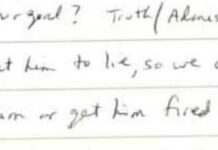 goal? Truth/
him to lie, so we
or get him fired